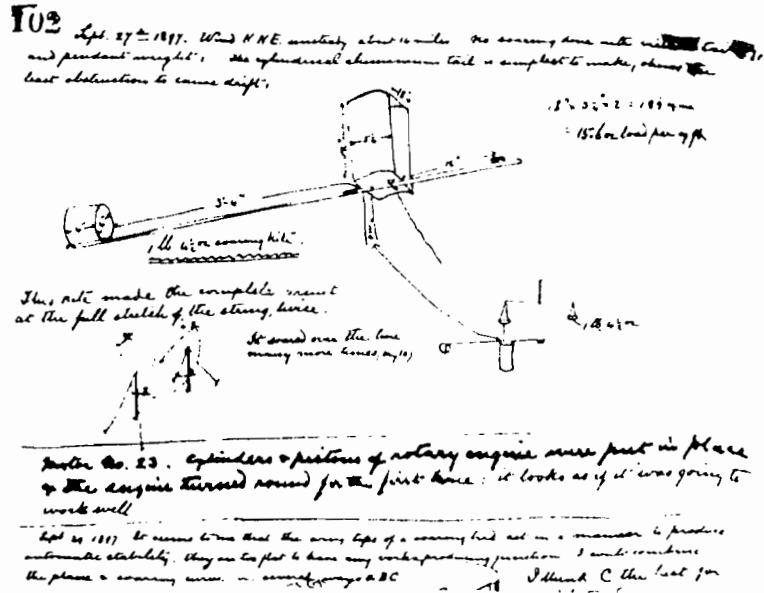 Sept. 27th 1897. Wind N N E. unsteady about 16 miles no soaring done with
and pendant weight. The cylindrical aluminium tail is simplest to make, shows the
least obstruction to cause drift.
15.6 oz load per sq ft
5½
3'-6"
1 lb 4½ oz soaring kite.
This kite made the complete
at the full stretch of the string, twice.
It soared over the line
many more times,
1 lb 4½ oz
Motor No. 23. Cylinders & pistons of rotary engine were put in place
& the engine turned round for the first time: it looks as if it was going to
work well
Sept 1897 It seems to me that the wing tips of a soaring bird act in a manner to produce
automatic stability. they are too flat to have any work producing function I will combine
the plane & soaring curve in several ways A B C I think C the best for